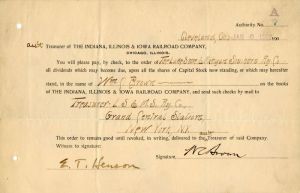 Authority No.
Cleveland, Ohio, JAN 190
Asst Treasurer of THE INDIANA, ILLINOIS & IOWA RAILROAD COMPANY,
CHICAGO, ILLINOIS.
You will please pay, by check, to the order of Treas Lake Shore & Michigan Southern Ry Co
of dividends which may become due, upon all the shares of Capital Stock now standing, or which may hereafter
stand, in the name of Wm C Brown on the books
of THE INDIANA, ILLINOIS & IOWA RAILROAD COMPANY, and send such checks by mail to
Treasurer L S & M S Ry Co
Grand Central Station
New York, N.Y.
This order to remain good until revoked, in writing, delivered to Treasurer of said company.
Witness to signature:
Signature, W C Brown
E. T. Henson